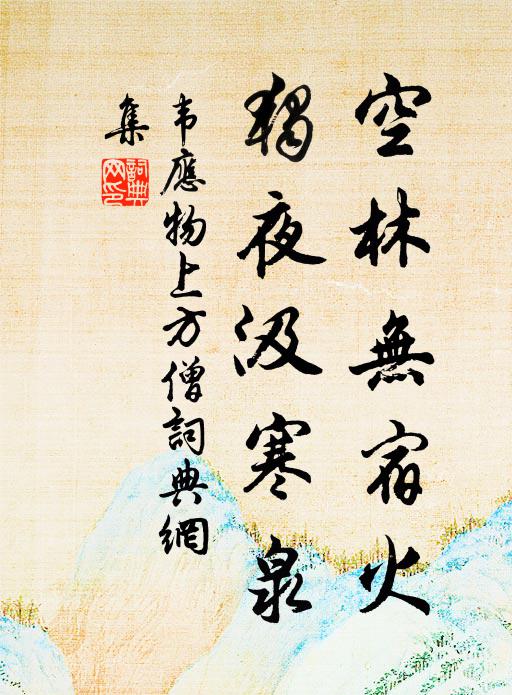 空林無宿火
獨夜汲寒泉
韦應物上方僧詞典網
集
詞典
网印